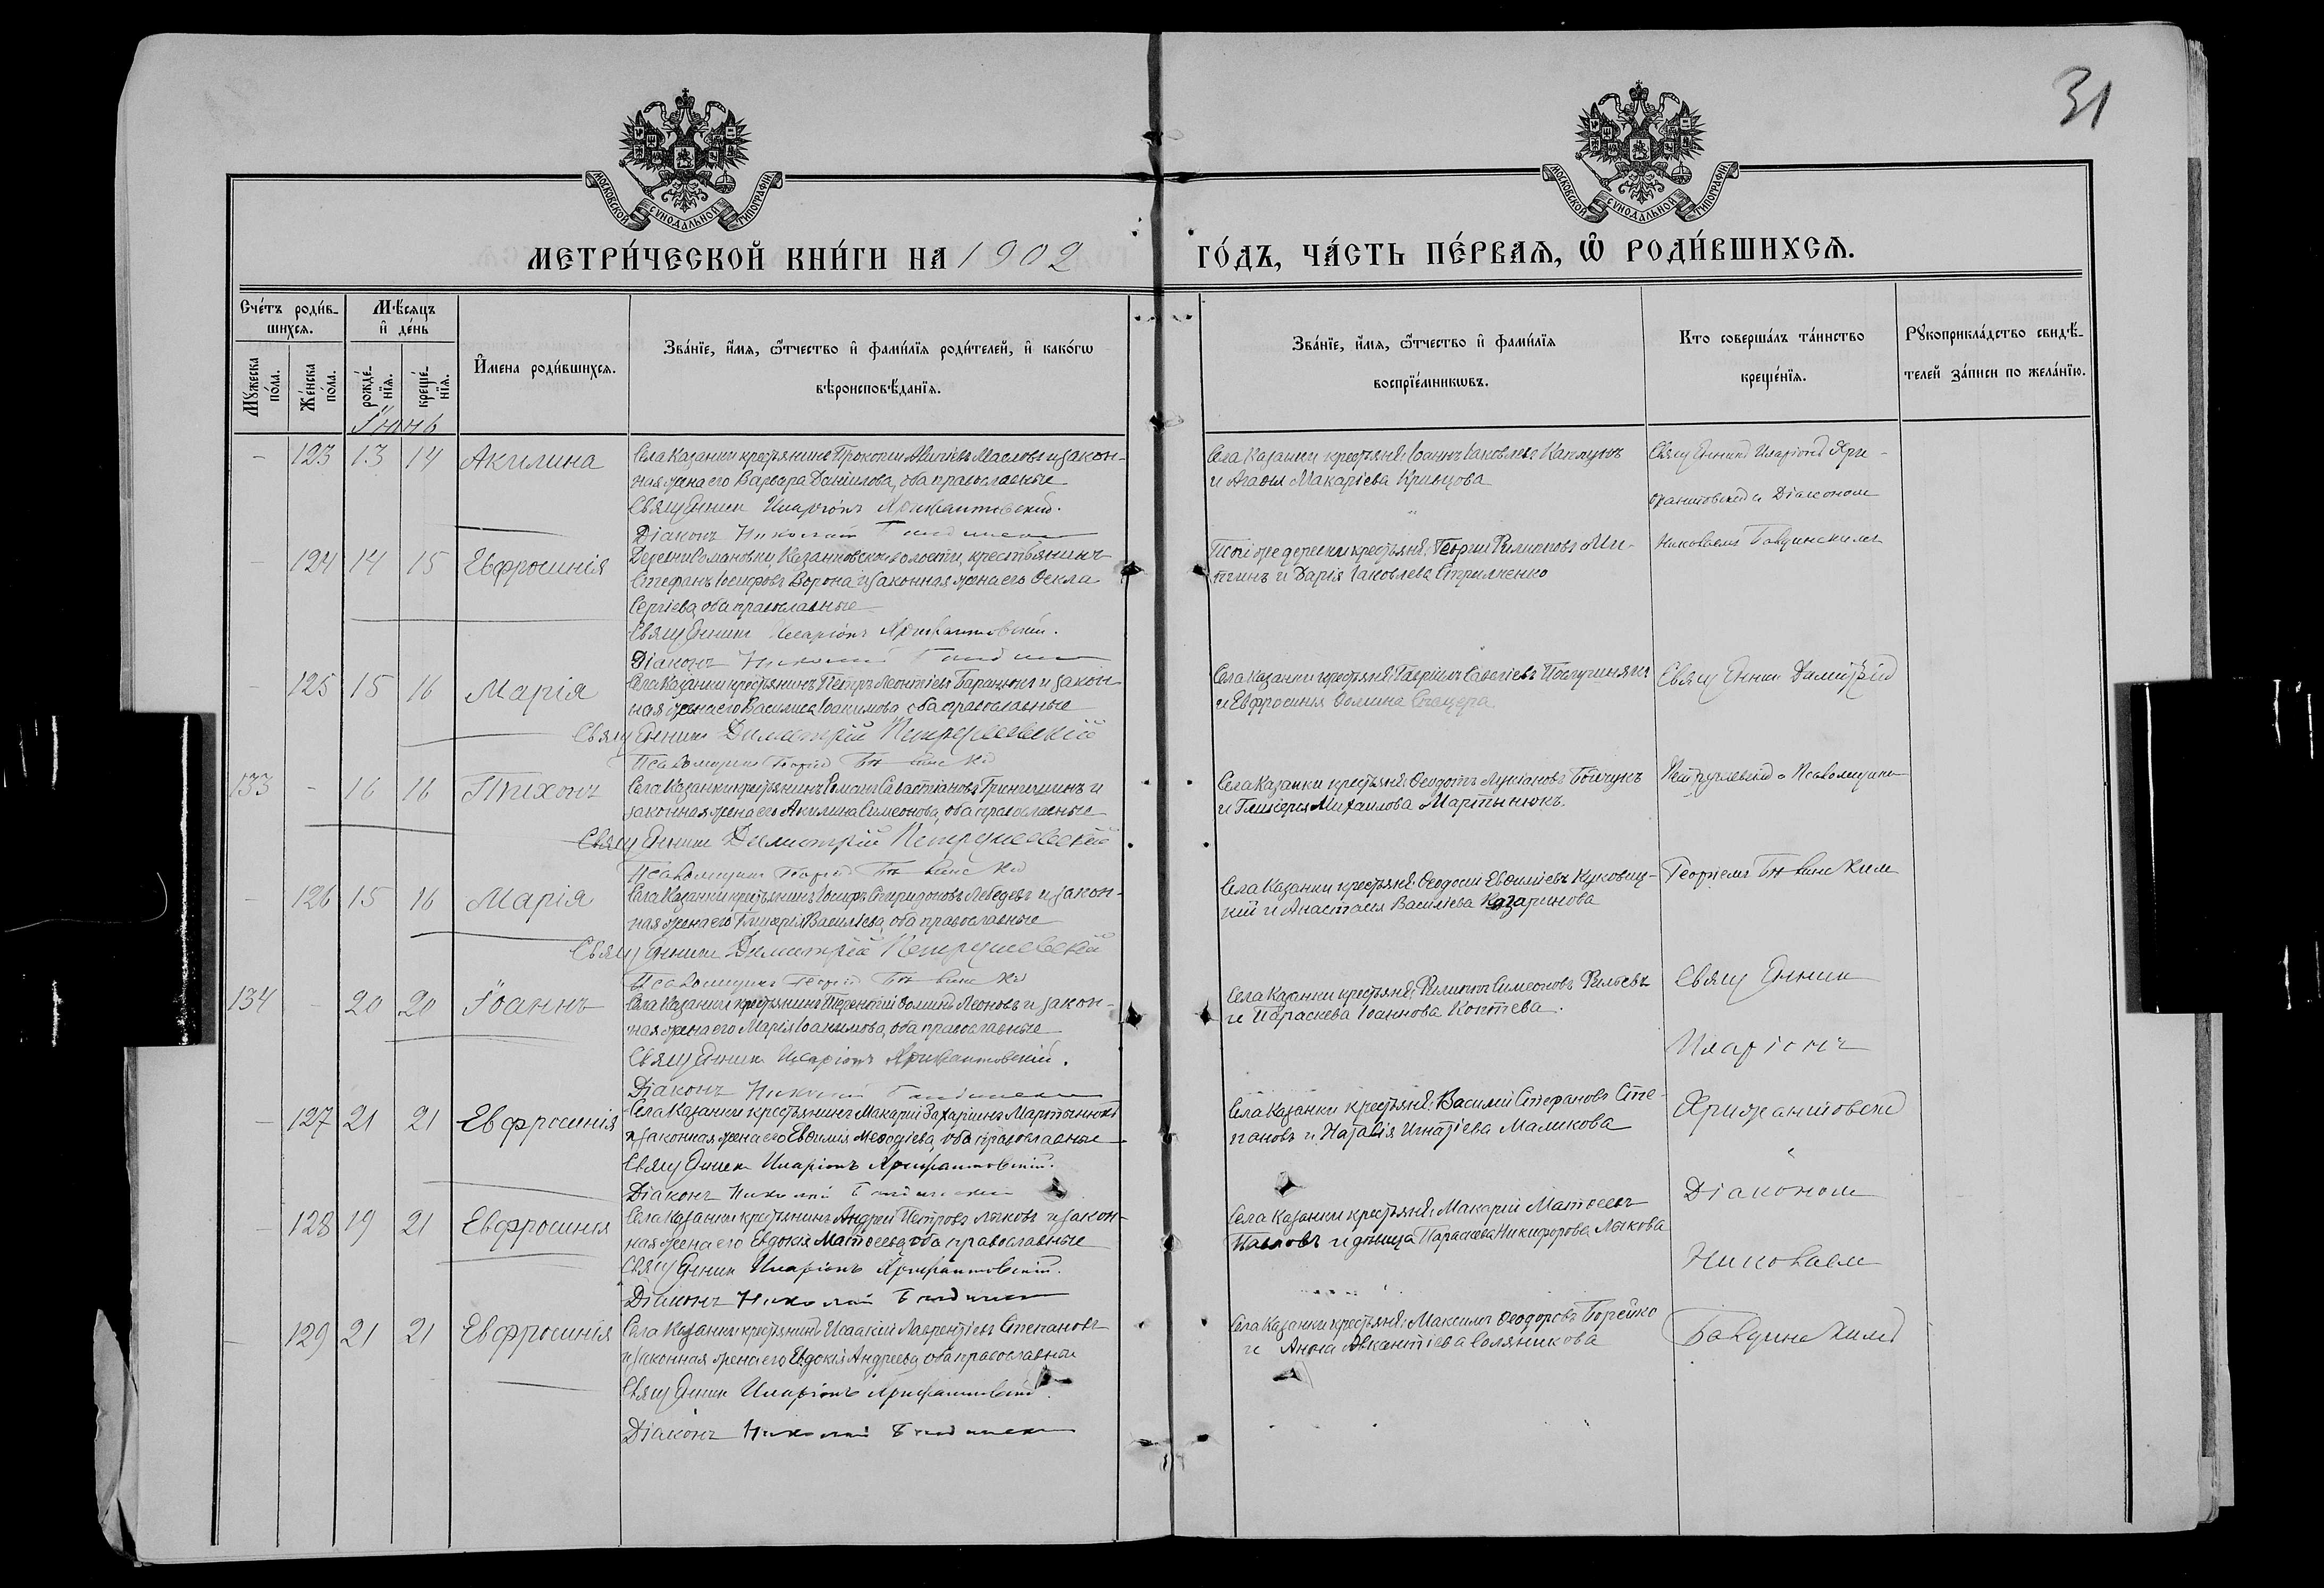 31
МОСКОВСКОЙ СУНОДАЛЬНОЙ ТИПОГРАФІИ
МОСКОВСКОЙ СУНОДАЛЬНОЙ ТИПОГРАФІИ
МЕТРИ́ЧЕСКОЙ КНИ́ГИ НА 1902
ГО́ДЪ, ЧА́СТЬ ПЕ́РВАѦ, Ѽ РОДИ́ВШИХСѦ.
Сче́тъ роди́в-
шихсѧ.
Мꙋ́жеска
по́ла.
Же́нска
по́ла.
Мѣ́сѧцъ
и҆ де́нь
рожде́-
нїѧ.
креще́-
нїѧ.
И҆мена роди́вшихсѧ.
Зва́нїе, и҆́мѧ, ѻ҆́тчество и҆ фами́лїѧ роди́телей, и҆ како́гѡ
вѣроисповѣ́данїѧ.
Зва́нїе, и҆́мѧ, ѻ҆́тчество и҆ фами́лїѧ
воспрїе́мникѡвъ.
Кто соверша́лъ та́инство
креще́нїѧ.
Рꙋкоприкла́дство свидѣ́-
телей за́писи по жела́нїю.
Іюнь
- 123 13 14 Акилина
Села Казанки крестьянинъ Прокопій Масловъ и закон-
ная жена его Варвара Даніилова, оба православные
Священникъ Иларіонъ
Діаконъ Николай
Села Казанки крестьяне: Іоаннъ Іаковлевъ Каплунъ
и Агафія Макаріева Кривцова
Священникъ Иларіонъ
и Діакономъ
Николаемъ
- 124 14 15 Евфросинія
Деревни Романовки, Казанковской волости, крестьянинъ
Стефанъ Іосифовъ Ворона и законная жена его Ѳекла
Сергіева, оба православные
Священникъ Иларіонъ
Діаконъ Николай
Той же деревни крестьяне: Георгій Филипповъ
и Дарія Іаковлева
- 125 15 16 Марія
Села Казанки крестьянинъ Петръ Леонтіевъ и закон-
ная жена его Василиса Іоакимова оба православные
Священникъ Димитрій Петрушевскій
Псаломщикъ Георгій
Села Казанки крестьяне: Гавріилъ
и Евфросинія Ѳомина
Священникъ Димитрій
133 - 16 16 Тихонъ
Села Казанки крестьянинъ Романъ Севастіановъ и
законная жена его Акилина Симеонова, оба православные
Священникъ Димитрій Петрушевскій
Псаломщикъ Георгій
Села Казанки крестьяне: Ѳеодотъ Лукіановъ Бойчукъ
и Гликерія Михаилова Мартынюкъ.
Петрушевскій и Псаломщикъ
- 126 15 16 Марія
Села Казанки крестьянинъ Іосифъ Спиридоновъ Лебедевъ и закон-
ная жена его Гликерія Василіева, оба православные
Священникъ Димитрій Петрушевскій
Псаломщикъ Георгій
Села Казанки крестьяне: Ѳеодосій Евѳиміевъ
и Анастасія Василіева Казаринова
Георгіемъ
134 - 20 20 Іоаннъ
Села Казанки крестьянинъ Терентій Ѳоминъ Леоновъ и закон-
ная жена его Марія Іоакимова, оба православные
Священникъ Иларіонъ
Діаконъ Николай
Села Казанки крестьяне: Филиппъ Симеоновъ
и Параскева Іоаннова Коптева.
Священник
Иларіонъ
- 127 21 21 Евфросинія
Села Казанки крестьянинъ Макарій Захаріинъ Мартынюкъ
и законная жена его Евѳимія Меѳодіева, оба православные
Священникъ Иларіонъ
Діаконъ Николай
Села Казанки крестьяне: Василій Стефановъ Сте-
пановъ и Наталія Игнатіева Маликова
Діакономъ
- 128 19 21 Евфросинія
Села Казанки крестьянинъ Андрей Петровъ Лыковъ и закон-
ная жена его Евдокія Матѳеева, оба православные
Священникъ Иларіонъ
Діаконъ Николай
Села Казанки крестьяне: Макарій Матѳеевъ
Павловъ и дѣвица Параскева Никифорова Лыкова
Николаем
- 129 21 21 Евфросинія
Села Казанки крестьянинъ Исаакій Лаврентіевъ Степановъ
и законная жена его Евдокія Андреева, оба православные
Священникъ Иларіонъ
Діаконъ Николай
Села Казанки крестьяне: Максимъ Ѳеодоровъ Борейко
и Анна Соляникова